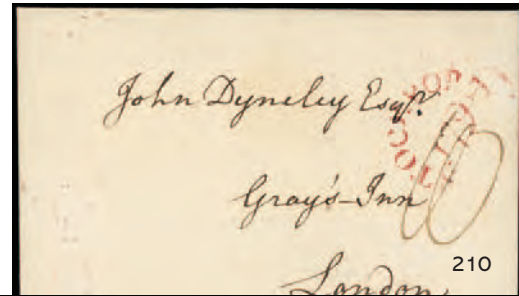 John Dyneley Esqr.
Gray's-Inn
London.
210